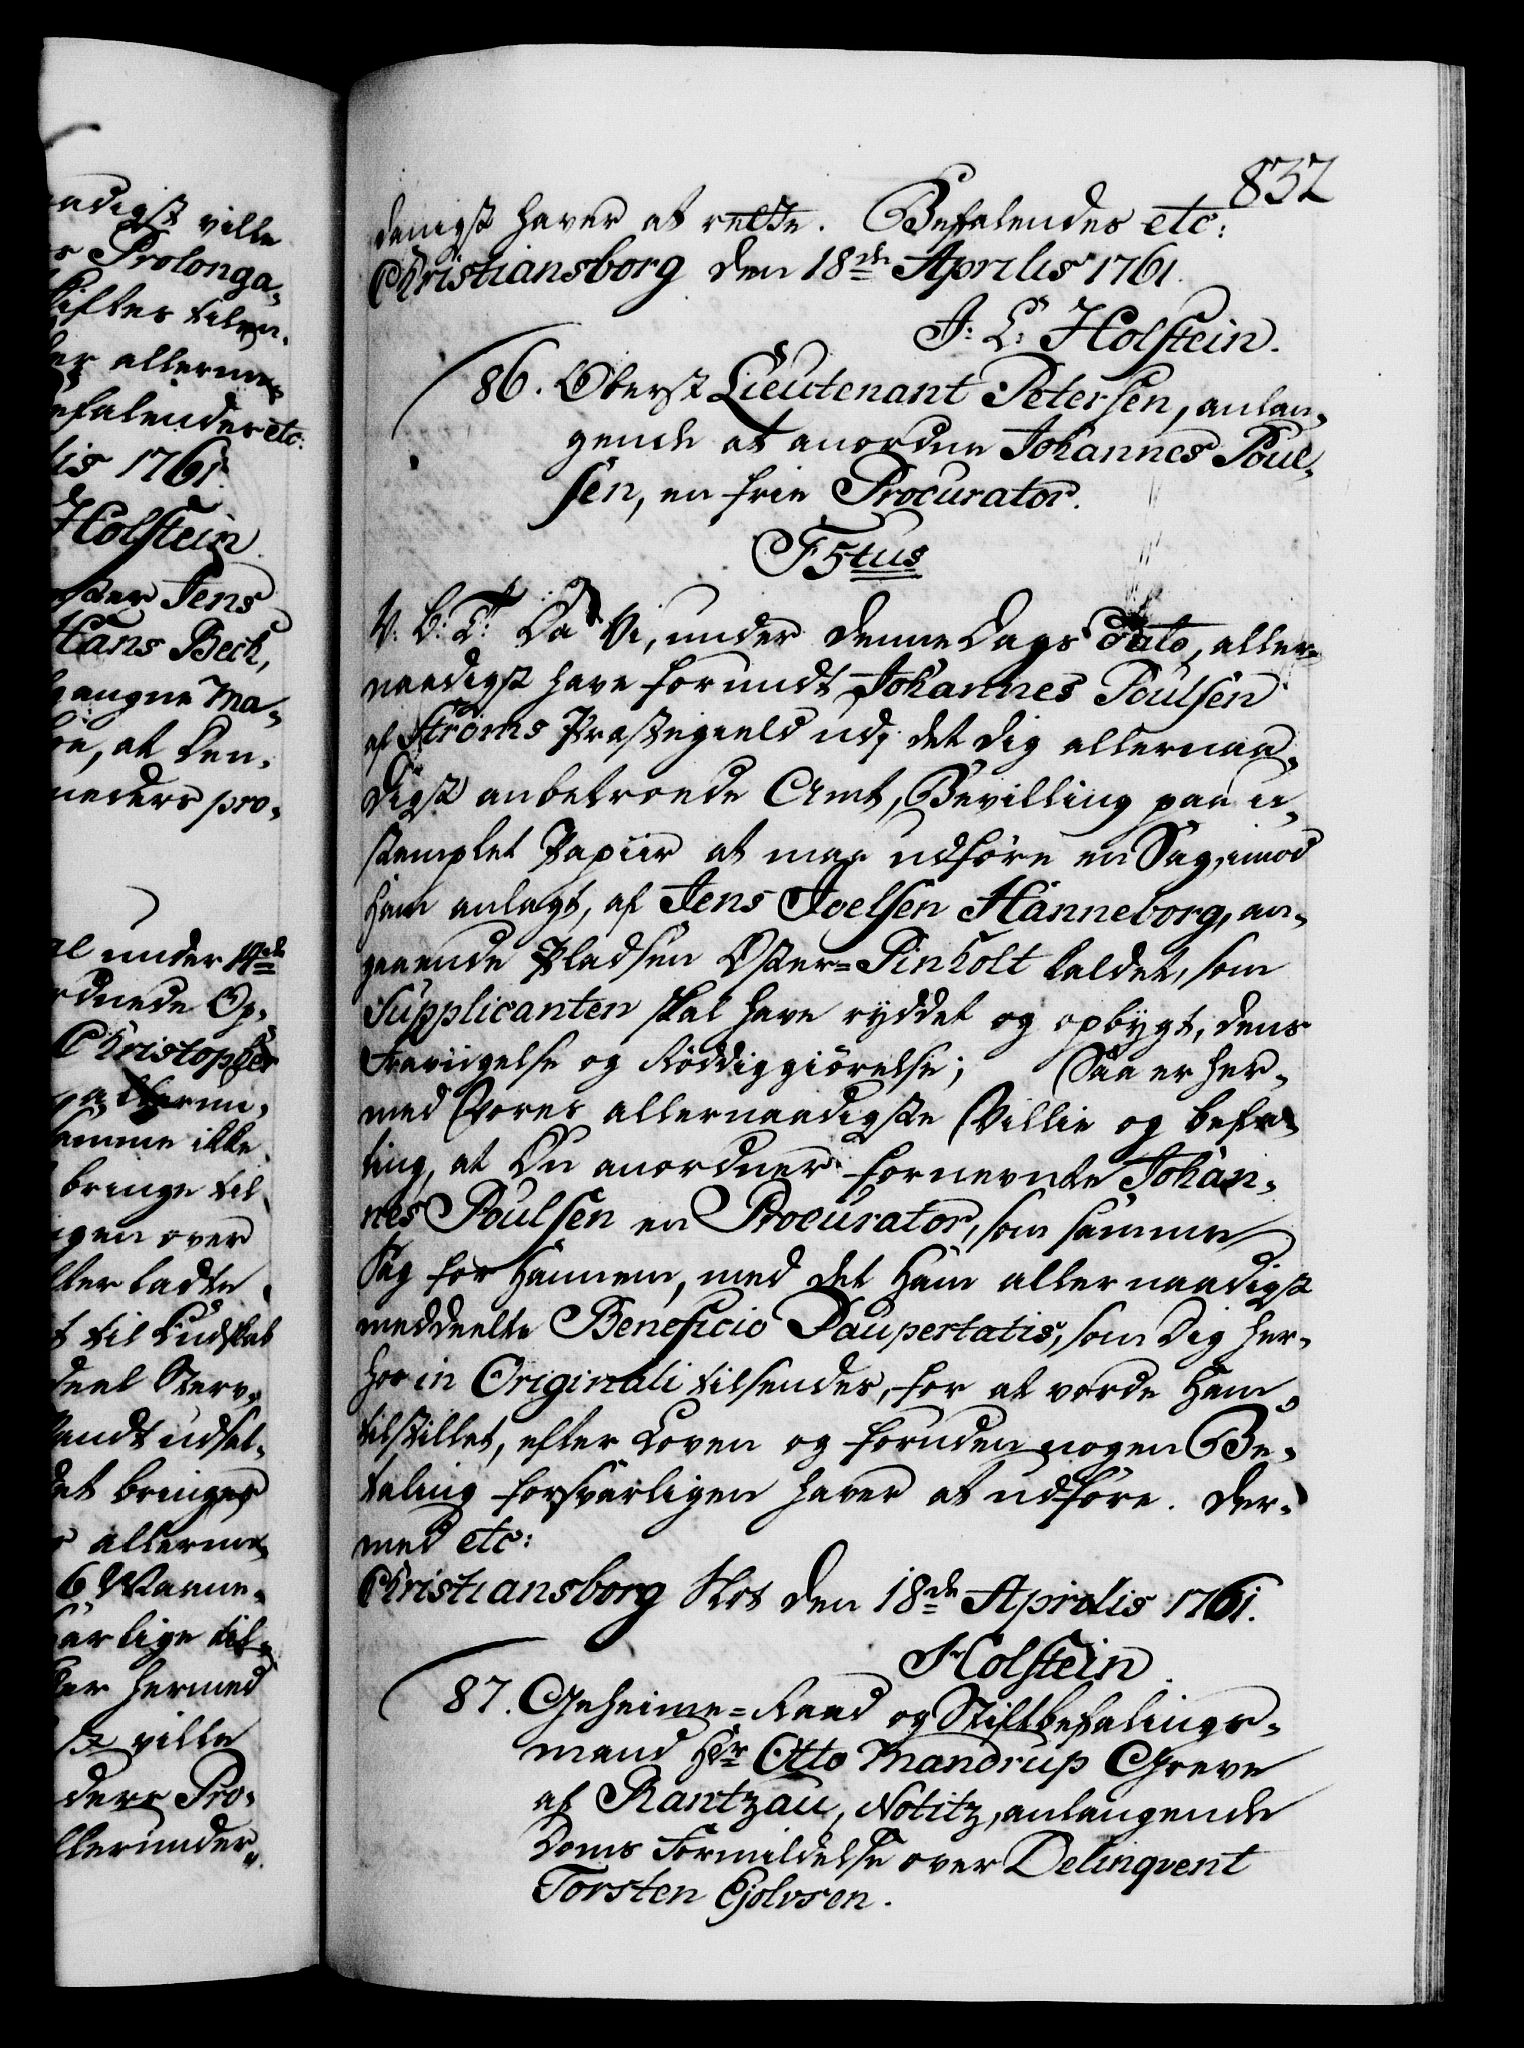 nadigst ville
Prolonga-
skifter tilen-
der allerun-
Befalendes etc:
lis 1761.
Holstein
Jens
Hans Beck,
gangne Ma-
at den-
neders pro-
al under 14de
rdnede Op-
Christopher
allerun-
samme ikke
bringe til
igen over
eller ladte
t til
deel
udsæt-
det bringes
allerun-
6 Maane-
til-
der hermed
ville
ders Pro-
llerunder-
832
danigst haver at rette. Befalendes etc:
Christiansborg den 18de Aprilis 1761.
J: L: Holstein.
86. Oberst Lieutenant Petersen, anlan-
gende at anordne Johannes Poul-
sen, en frie Procurator.
F5tus
V: G: T: Da Vi, under denne Dags Dato, aller-
naadigst have forundt Johannes Poulsen
af Ströms Præstegield udj det dig allernaa-
digst anbetroede Amt, Bevilling paa u-
stemplet Papiir at maa udføre en Sag, imod
ham anlagt, af Jens Joelsen Hanneborg, an-
gaaende Pladsen Oster-Pinholt kaldet, som
Supplicanten skal have ryddet og opbygt, dens
Fravigelse og Røddiggiörelse; Saa er her-
med Vores allernaadigste Villie og Befa-
ling, at Du anordner fornevnte Johan-
nes Poulsen en Procurator, som samme
Sag for hannem, med det ham allernaadigst
meddeelte Beneficio Paupertatis, som Dig her-
hos in Originali tilsendes, for at vorde ham
tilstillet, efter Loven og foruden nogen Be-
taling forsvarligen haver at udføre. Der-
med etc:
Christiansborg Slot den 18de Aprilis 1761.
Holstein
87. Geheime-Raad og Stiftbefalings-
mand Hr Otto Mandrup Greve
af Rantzau, Notitz, anlangende
Doms Formildelse over Delinqvent
Torsten Gjolvsen.